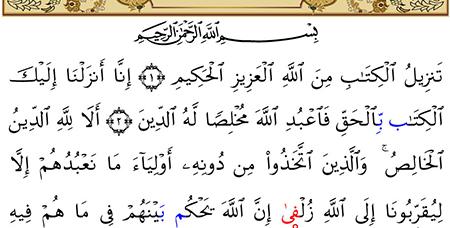 بِسْمِ ٱللَّهِ ٱلرَّحْمَٰنِ ٱلرَّحِيمِ
تَنزِيلُ ٱلْكِتَٰبِ مِنَ ٱللَّهِ ٱلْعَزِيزِ ٱلْحَكِيمِ ﴿١﴾ إِنَّآ أَنزَلْنَآ إِلَيْكَ
ٱلْكِتَٰب بِّٱلْحَقِّ فَٱعْبُدِ ٱللَّهَ مُخْلِصًا لَّهُ ٱلدِّينَ ﴿٢﴾ أَلَا لِلَّهِ ٱلدِّينُ
ٱلْخَالِصُ ۚ وَٱلَّذِينَ ٱتَّخَذُوا۟ مِن دُونِهِۦٓ أَوْلِيَآءَ مَا نَعْبُدُهُمْ إِلَّا
لِيُقَرِّبُونَآ إِلَى ٱللَّهِ زُلْفَىٰٓ إِنَّ ٱللَّهَ يَحْكُم بَيْنَهُمْ فِى مَا هُمْ فِيهِ